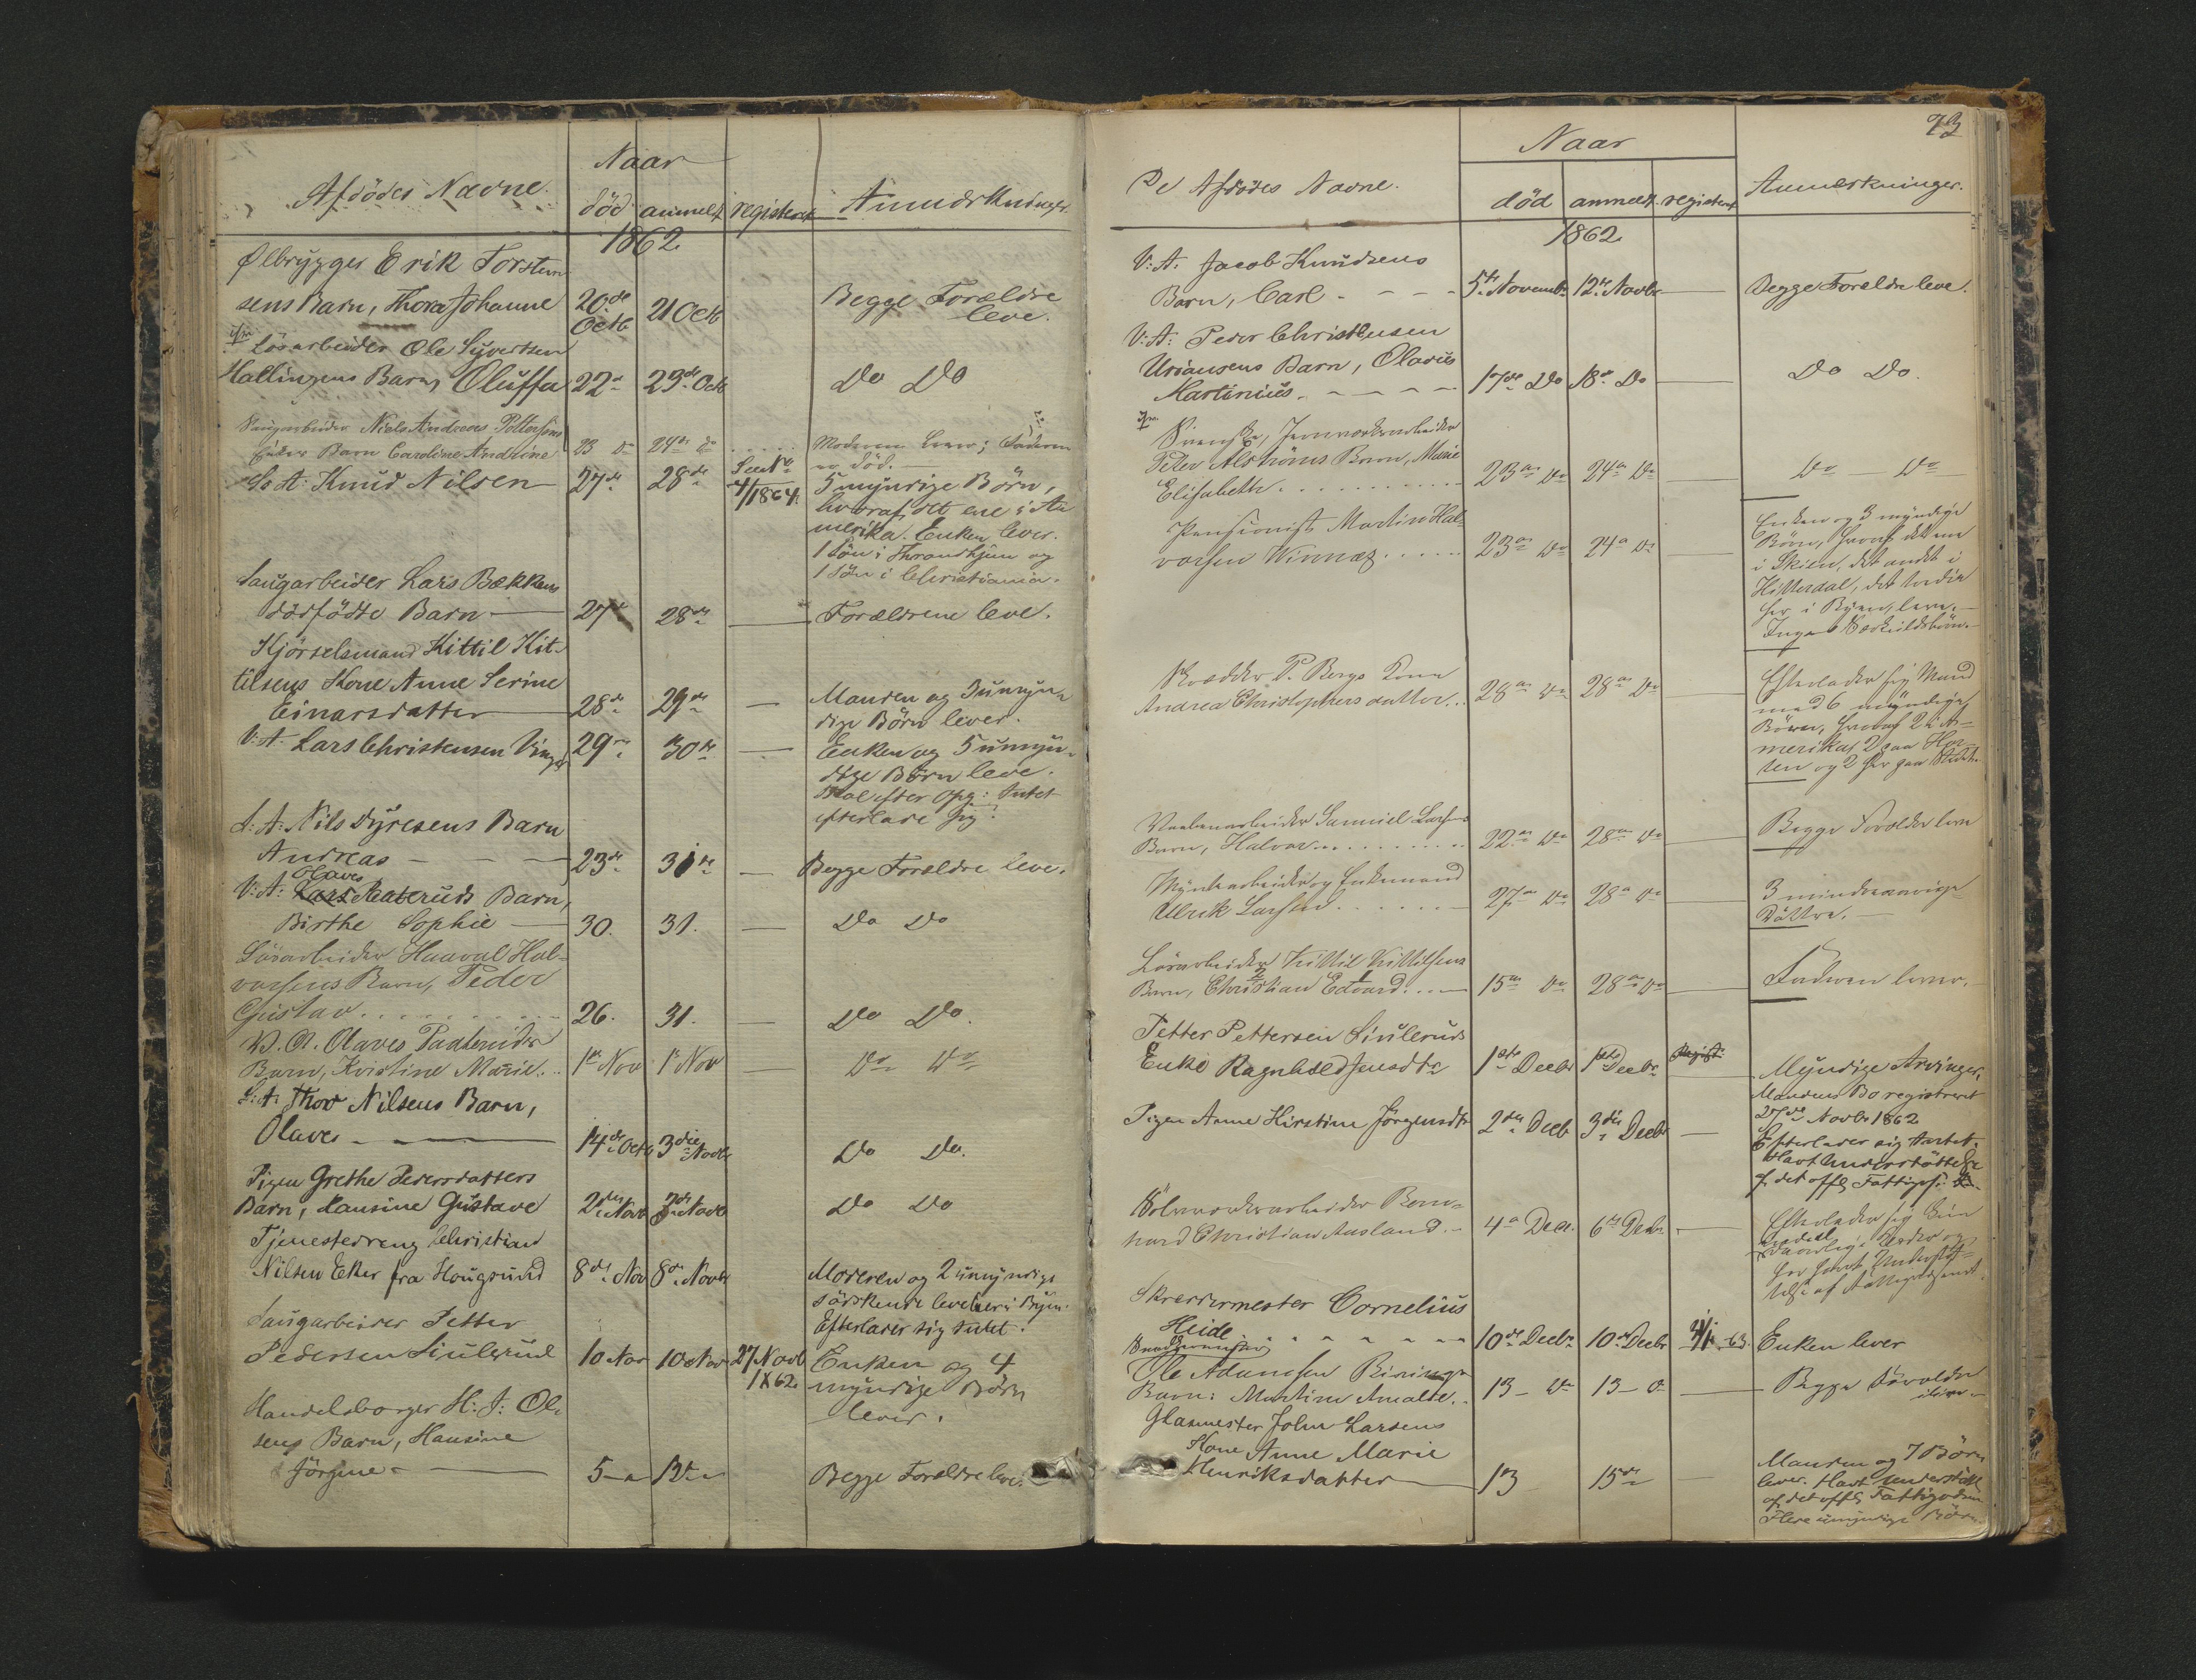 Naar
Afdödes Navne.
död anmelt registeret Anmærkninger
1862
Ølbrygger Erik Torsten
sens Barn, Thora Johanne 20de Octb 21 Octb Begge Forældre leve.
Lösarbeider Ole Syvertsen
Hallingens Barn, Oluffa 22de 23de Octb Do Do
Saugarbeider Niels Andreas Pettersens
Barn Caroline Andrine 23 do 24de do Moderen lever; Faderen
er död.
S: A: Knud Nilsen 27de 28de See No 4/1864. 5 myndige Börn,
hvoraf det ene i A
merika. Enken lever.
1 Sön i Throndhjem og
1 Sön i Christiania.
Saugarbeider Lars Bækkens
dödfödte Barn 27de 28de Forældrene leve.
Kjörselsmand Kittil Kit-
tilsens Kone Anne Serine
Einarsdatter 28de 29de Manden og 3 umyn-
dige Börn lever.
V: A: Lars Christensen Vinger 29de 30te Enken og 5 umyn-
dige Börn leve.
Skal efter Opg: Intet
efterlade sig.
S: A: Nils Dyresens Barn
Andreas 23de 31te Begge Forældre leve.
Olaves
V: A: Lars Materuds Barn,
Birthe Sophie 30. 31. Do Do
Lösarbeider Haaval Hal-
vorsens Barn, Peder
Gustav 26. 31. Do Do.
V. A. Olaves
Barn, Kristine Marie. 1ste Nov 1ste Nov Do Do
S: A: Thor Nilsens Barn,
Olaves 14de Octb 3die Novb Do Do.
Pigen Grethe Pedersdatters
Barn, Hansine Gustave 2den Novb 7de Novb Do Do
Tjenestedreng Christian
Nilsen Eker fra Hougsund 8de Nov 8de Novb Moderen og 2 umyndige
södskende leve her i Byen.
Efterlader sig Intet.
Saugarbeider Petter
Pedersen Siulerud 10 Nov 10 Nov 27 Novb 1862. Enken og 4
myndige Börn
lever.
Handelsborger H: J: Ol-
sens Barn, Hansine
Jörgine 5 Begge Forældre leve.
73
Naar
De Afdödes Navne.
död anmeldt registeret Anmærkninger.
1862
V: A: Jacob Knudsens
Barn, Carl 5te Novemb: 12te Novb: Begge Forældre leve.
V: A: Peder Christensen
Uriansens Barn, Olavus
Martinius. 17de Do 18de Do Do Do.
Svenske, Jernverksarbeider
Peter Alströms Barn, Marie
Elisabeth 23de do 24de do Do Do
Pensionist Martin Hal-
vorsen Winnæs 23de do 24de do Enken og 3 myndige
Börn, hvoraf det ene
i Skien, det andet i
Hitterdal, det tredie
her i Byen, leve.
Inga
Skrædder P. Bergs Kone
Andrea Christophersdatter 28de do 28de do Efterlader sig Mand
med 6 myndige
Börn, hvoraf 2 i A-
merika, 2 paa Hor-
ten og 2 her paa Stedet.
Vaabenarbeider Samuel Larsens
Barn, Halvor 22de do 28de do Begge Forældre leve
Myntarbeider og Enkemand
Ulrik Larsen 27de do 28de do 3 mindreaarige
Döttre.
Lösarbeider Kittil Kittilsens
Barn, Christian Edvard. 15de do 28de do Faderen lever.
Petter Pettersen Siuleruds
Enke Ragnhild Jensdtr 1ste Decbr 1ste Decbr Regist: Myndige Arvinger.
Mandens Bo registreret
27de Novbr 1862
Pigen Anne Kirstine Jörgensdtr 2den Decb 3die Decbr Efterlader sig Intet.
Havt Understöttelse
af det offl Fattigv:
Sölvverksarbeider Bern-
hard Christian Aasland. 4de Decb. 6te Decbr Efterlader sig
har havt Understöt-
telse af Fattigvæsenet.
Skreddermester Cornelius
Heide 10de Decbr 10de Decbr 63. Enken lever
Ole Adamsen
Barn: Martine Amalie. 13 do 13 do Begge Forældre
ilive
Glasmester John Larsens
Kone Anne Marie
Henriksdatter 13 15de Manden og 7 Börn
lever. Havt Understött
af det offl Fattigvæsen
Flere umyndige Börn.